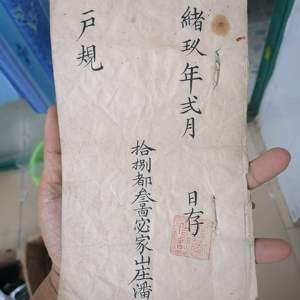 緒玖年弍月
日存
拾捌都叁啚宓家山庄潘
戸規